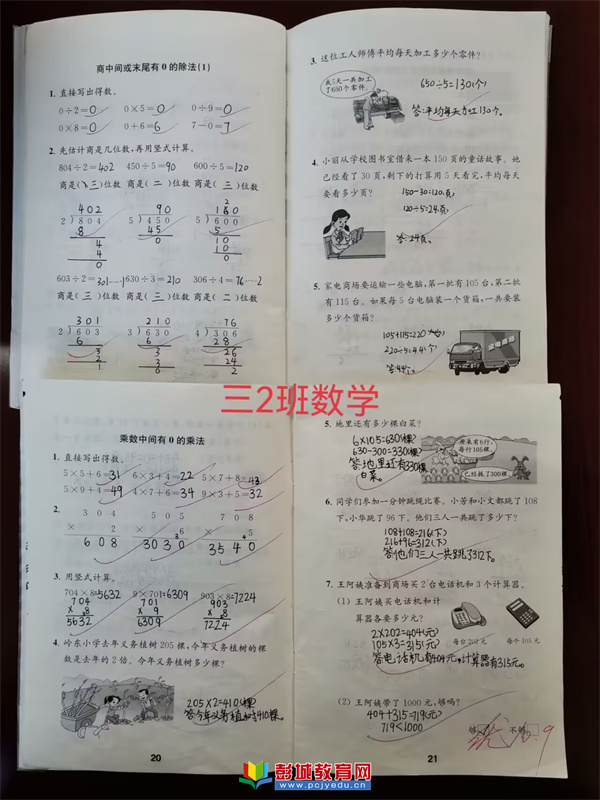 商中间或末尾有0的除法(1)
1. 直接写出得数。
0÷2=0 0×5=0 0÷9=0
0×8=0 0+6=6 7-0=7
2. 先估计商是几位数,再用竖式计算。
804÷2=402 450÷5=90 600÷5=120
商是(三)位数 商是(二)位数 商是(三)位数
402 90
2)804 5)450 5)600
8 45 5
4 0 10
4 10
0 0
603÷2=301……1 630÷3=210 306÷4=76……2
商是(三)位数 商是(三)位数 商是(二)位数
301 210 76
2)603 3)630 4)306
6 6 28
3 3 26
2 3 24
1 0 2
3. 这位工人师傅平均每天加工多少个零件?
我5天一共加工
了650个零件。
650÷5=130(个)
答:平均每天加工130个。
4. 小丽从学校图书室借来一本150页的童话故事。她
已经看了30页,剩下的打算用5天看完,平均每天
要看多少页?
150-30=120页
120÷5=24页
答:24页。
5. 家电商场要运输一些电脑,第一批有105台,第二批
有115台。如果每5台电脑装一个货箱,一共要装
多少个货箱?
105+115=220(台)
220÷5=44(个)
答:44个。
三2班数学
乘数中间有0的乘法
1. 直接写出得数。
5×5+6=31 6×3+4=22 5×7+8=43
5×9+4=49 4×7+6=34 9×3+5=32
2. 304 505 708
× 2 × 6 × 5
608 3030 3540
3. 用竖式计算。
704×8=5632 9×701=6309 903×8=7224
704 701 903
× 8 × 9 × 8
5632 6309 7224
4. 岭东小学去年义务植树205棵,今年义务植树的棵
数是去年的2倍。今年义务植树多少棵?
205×2=410(棵)
答:今年义务植树410棵。
20
5. 地里还有多少棵白菜?
原来有6行,
每行105棵。
已经拔了300棵。
6×105=630(棵)
630-300=330(棵)
答:地里还有330棵
白菜。
6. 同学们参加一分钟跳绳比赛。小芳和小文都跳了108
下,小华跳了96下。他们三人一共跳了多少下?
108+108=216(下)
216+96=312(下)
答:他们三人一共跳了312下。
7. 王阿姨准备到商场买2台电话机和3个计算器。
(1) 王阿姨买电话机和计
算器各要多少元?
每台202元 每个105元
2×202=404(元)
105×3=315(元)
答:电话机有404元,计算器有315元。
(2) 王阿姨带了1000元,够吗?
404+315=719(元)
719<1000
够 不够
21
彭城教育网
www.pcjyedu.cn